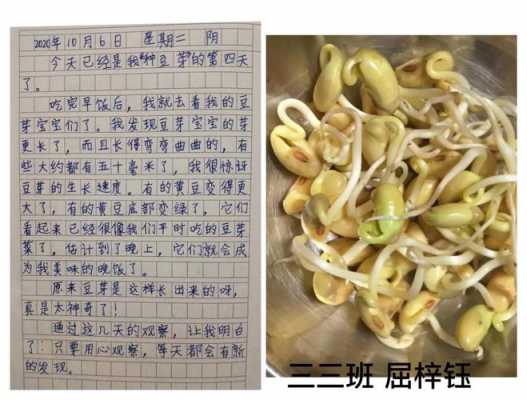 2020年10月6日 星期二 阴
今天已经是我种豆芽的第四天
了。
吃完早饭后,我就去看我的豆
芽宝宝们了。我发现豆芽宝宝的芽
更长了,而且长得弯弯曲曲的,有
些大约都有五十毫米了,我很惊讶
豆芽的生长速度。有的黄豆变得更
大了,有的黄豆底都变绿了,它们
看起来已经很像我们平时吃的豆芽
菜了,估计到了晚上,它们就会成
为我美味的晚饭了。
原来豆芽是这样长出来的呀,
真是太神奇了!
通过这几天的观察,让我明白
了:只要用心观察,每天都会有新
的发现。
三三班 屈梓钰